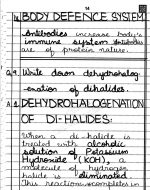 BODY DEFENCE SYSTEM
Antibodies increase body's
immune system. Antibodies
are of protein nature.
Q.4 Write down dehydrohalog-
enation of dihalides.
A.4 DEHYDROHALOGENATION
OF DI-HALIDES:
When a di-halide is
treated with alcoholic
solution of Potassium
Hydroxide (KOH), a
molecule of hydrogen
halide is eliminated.
This reaction completes in